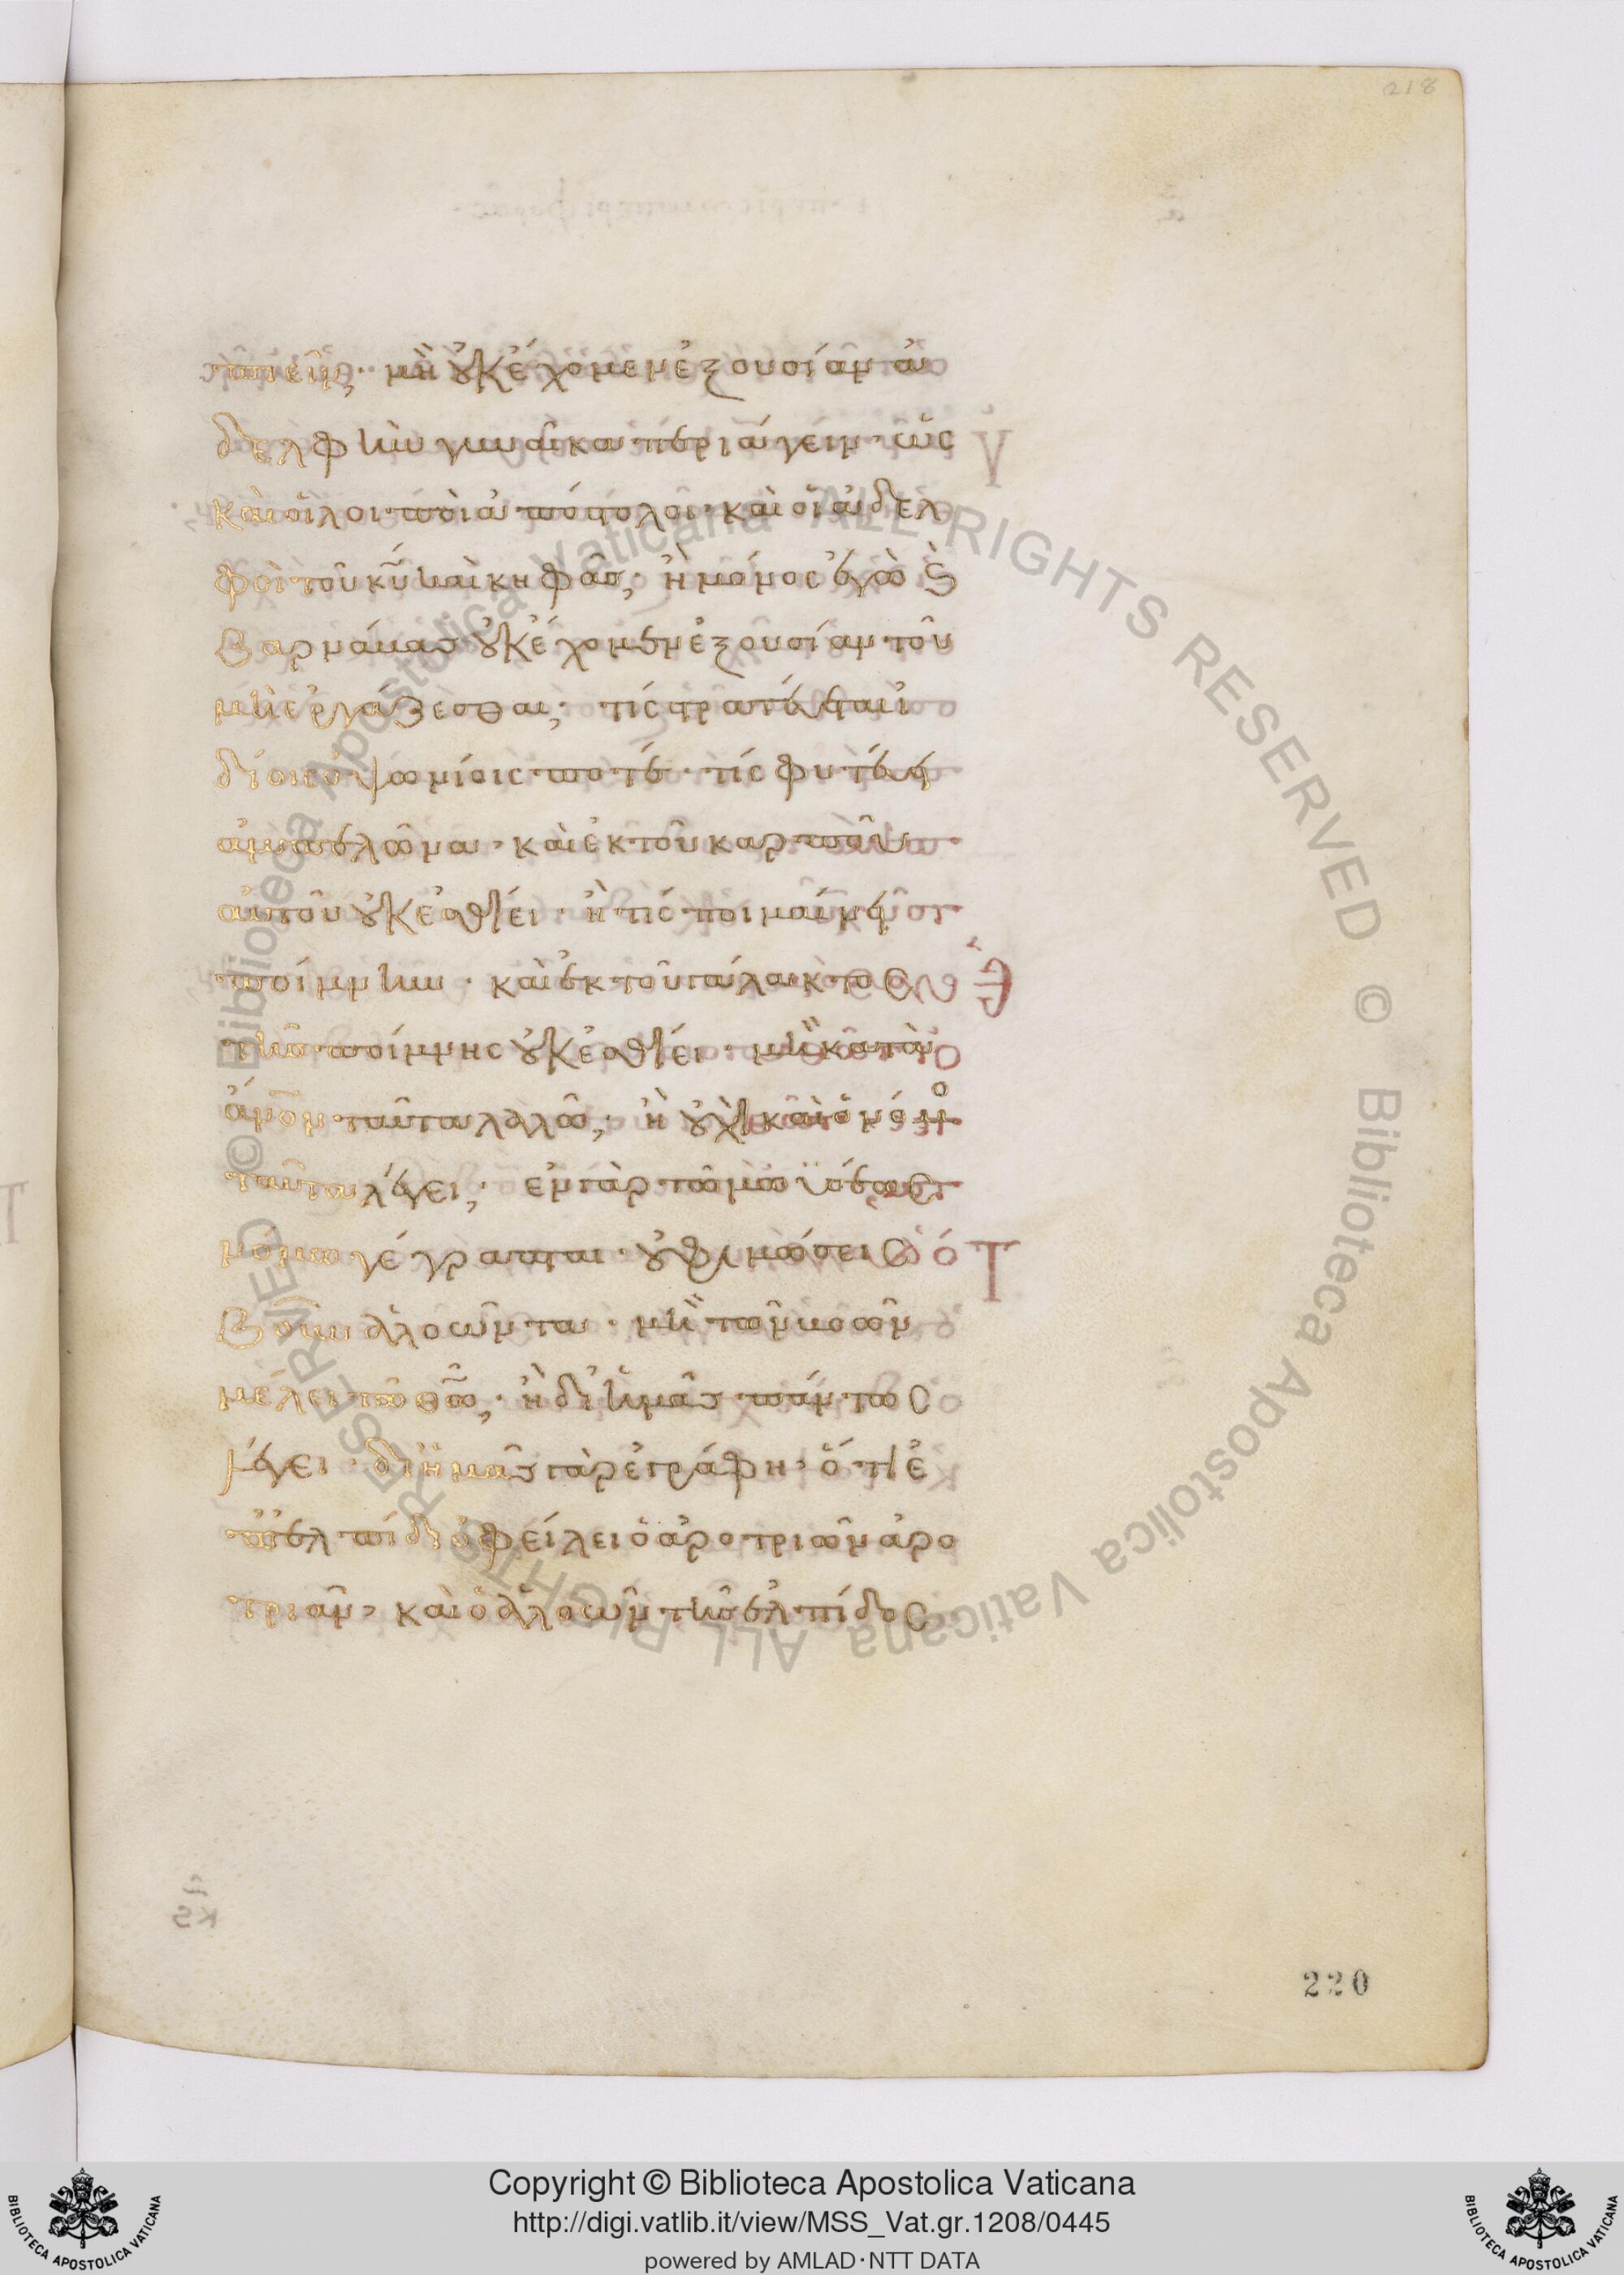 218
πιεῖν; μὴ οὐκ ἔχομεν ἐξουσίαν ἀ
δελφὴν γυναῖκα περιάγειν· ὡς
καὶ οἱ λοιποὶ ἀπόστολοι· καὶ οἱ ἀδελ
φοὶ τοῦ κυ̅ καὶ κηφᾶς; ἢ μόνος ἐγὼ ϗ
βαρνάβας οὐκ ἔχομεν ἐξουσίαν τοῦ
μὴ ἐργάζεσθαι; τίς στρατεύεται ἰ
δίοις ὀψωνίοις ποτέ· τίς φυτεύει
ἀμπελῶνα· καὶ ἐκ τοῦ καρποῦ
αὐτοῦ οὐκ ἐσθίει· ἢ τίς ποιμαίνει
ποίμνην· καὶ ἐκ τοῦ γάλακτος
τῆς ποίμνης οὐκ ἐσθίει· μὴ κατὰ
ἄνον̅ ταῦτα λαλῶ; ἢ οὐχὶ καὶ ὁ νόμο
ταῦτα λέγει; ἐν γὰρ τῶ μωϋσέως
νόμω γέγραπται· οὐ φιμώσεις
βοῦν ἀλοῶντα· μὴ τῶν βοῶν
μέλει τῶ θω̅; ἢ δι' ἡμᾶς πάντως
λέγει· δι' ἡμᾶς γὰρ ἐγράφη· ὅτι ἐ
π' ἐλπίδι ὀφείλει ὁ ἀροτριῶν ἀρο
τριᾶν· καὶ ὁ ἀλοῶν τῆς ἐλπίδος
220
© Biblioteca Apostolica Vaticana ALL RIGHTS RESERVED © Biblioteca Apostolica Vaticana ALL RIGHTS RESERVED
Copyright © Biblioteca Apostolica Vaticana
http://digi.vatlib.it/view/MSS_Vat.gr.1208/0445
powered by AMLAD·NTT DATA
BIBLIOTECA APOSTOLICA VATICANA
BIBLIOTECA APOSTOLICA VATICANA